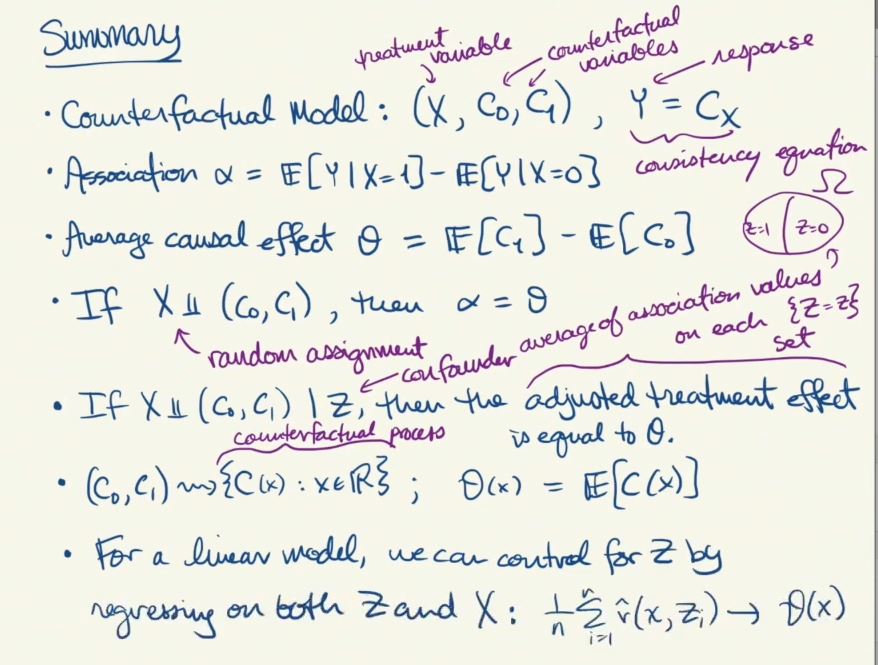 Summary
treatment variable
counterfactual variables
response
• Counterfactual Model: (X, C₀, C₁), Y = C_X
consistency equation
• Association α = 𝔼[Y|X=1] - 𝔼[Y|X=0]
Ω
z=1 | z=0
• Average causal effect θ = 𝔼[C₁] - 𝔼[C₀]
• If X ⫫ (C₀, C₁), then α = θ
random assignment
confounder
average of association values
on each {Z=z}
set
• If X ⫫ (C₀, C₁) | Z, then the adjusted treatment effect
is equal to θ.
counterfactual process
• (C₀, C₁) ⇝ {C(x) : x ∈ ℝ} ; θ(x) = 𝔼[C(x)]
• For a linear model, we can control for Z by
regressing on both Z and X: 1/n Σ_{i=1}^{n} r̂(x, Z_i) → θ(x)